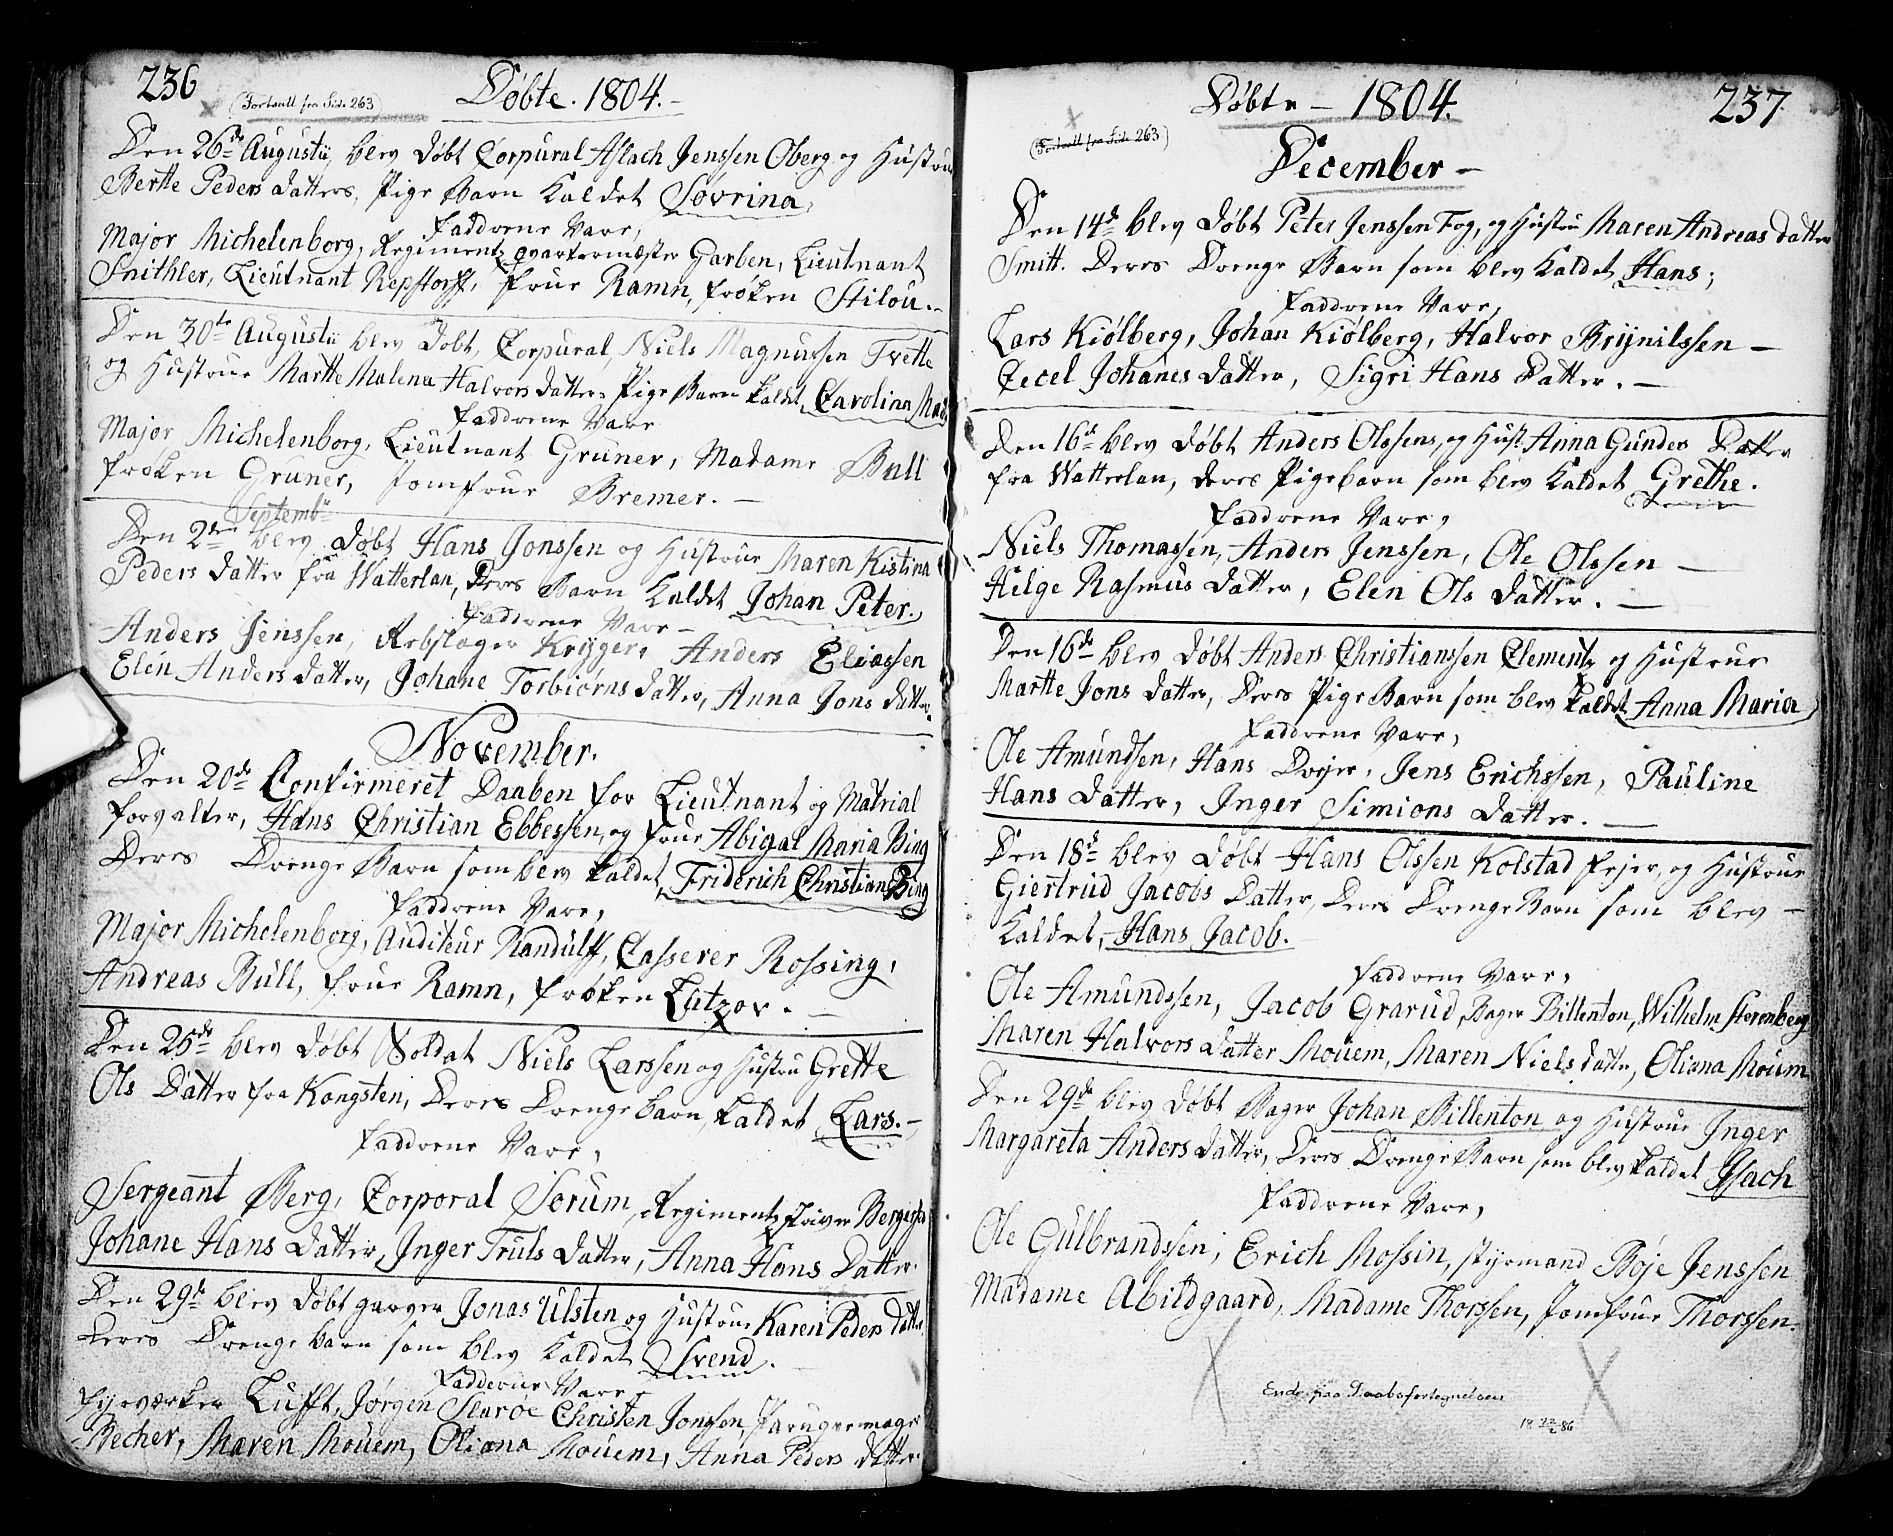 236
(Fortsatt fra Side 263)
Døbte. 1804. –
Den 26de Augustii, blev døbt Corpural Aslach Jenssen Oberg og Hustrue
Berthe Peders datters, Pige Barn Kaldet Søvrina,
Faddrene Vare,
Major Michelenborg, Regiments qvartermæster Garben, Lieutnant
Snithler, Lieutnant Repstorff, frue Ramn, frøken Stilou. –
Den 30te Augustii blev døbt, Corpural, Niels Magnussen Tvette
og Hustrue Marthe Malena Halvors datters Pige Barn kaldet, Carolina Mad
Faddrene Vare
Major Michelenborg, Lieutnant Gruner, Madame Bull
frøken Gruner, Jomfrue Bremer. –
Septembr
Den 2den blev døbt Hans Jonssen og Hustrue Maren Kistina
Peders datter fra Watterlan, deres Barn Kaldet Johan Peter.
Faddrene Vare –
Anders Jenssen, Rebslager Kryger, Anders Eliassen
Elen Anders datter, Johane Torbiørns datter, Anna Jons datter.
November.
Den 20de Confirmeret Daaben for Lieutnant og Matrial
forvalter, Hans Christian Ebbessen, og frue Abigal Maria Bing
Deres Drenge Barn som blev kaldet, Friderich Christian Bing
Faddrene Vare,
Major Michelenborg, Auditeur Randulff, Casserer Rossing,
Andreas Bull, frue Ramn, frøken Lutzov. –
Den 25de blev døbt Soldat Niels Larssen og Hustru Grette
Ols Datter fra Kongsten, Deres Drenge barn, kaldet Lars. –
Faddrene Vare,
Sergeant Berg, Corporal Sørum, Regimentz skriver
Johane Hans Datter, Inger Truls datter, Anna Hans Datter.
Den 29de blev døbt garver Jonas Ulsten og Hustrue Karen Peders datter
deres Drenge barn som blev Kaldet Svend.
Faddrene Vare,
fyrværker Lufft, Jørgen Christen Jonssen, Parugvemager
Becher, Maren Mouem, Oliana Mouem, Anna Peders datter.
Døbte – 1804.
237
(Fortsatt fra Side 263)
December –
Den 14de blev døbt Peter Jenssen Fog, og Hustru Maren Andreas datter
Smitt. Deres Drenge Barn som blev Kaldet, Hans;
Faddrene Vare,
Lars Kiølberg, Johan Kiølberg, Halvor Brynilssen –
Cecel Johanes datter, Sigri Hans Datter. –
Den 16de blev døbt Anders Olssens, og Hust. Anna Gunders Datter
fra Watterlan, deres Pige barn som blev Kaldet Grethe.
Faddrene Vare,
Niels Thomassen, Anders Jenssen, Ole Olssen –
Helge Rasmus datter, Elen Ols datter. –
Den 16de blev døbt Anders Christianssen Clementz og Hustrue
Marthe Jons datter, Deres Pige Barn som blev kaldet, Anna Maria
Faddrene Vare,
Ole Amundsen, Hans Jens Erichssen, Pauline
Hans datter, Inger Simions datter. –
Den 18de blev døbt Hans Olssen Kolstad fejer, og Hustrue
Giertrud Jacobs Datter, Deres Drenge Barn som blev –
Kaldet, Hans Jacob.
Faddrene Vare,
Ole Amundssen, Jacob Grarud, Bager Billenton, Wilhelm Storenberg
Maren Halvors datter Mouem, Maren Niels datter, Oliana Mouem
Den 29de blev døbt Bager Johan Billenton og Hustrue Inger
Margareta Anders datter, Deres Drenge Barn som blev kaldet Isach
Faddrene Vare,
Ole Gulbrandssen, Erich Mossin, styrmand Bøje Jenssen
Madame Abildgaard, Madame Thorssen, Jomfrue Thorssen.
Ende paa Daabsfortegnelsen
18 22/2 86